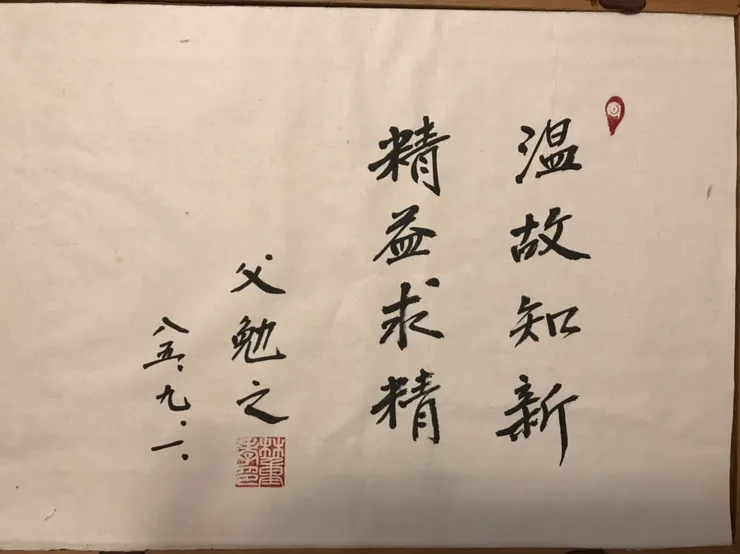 温故知新
精益求精
父勉之
八五.九.一.